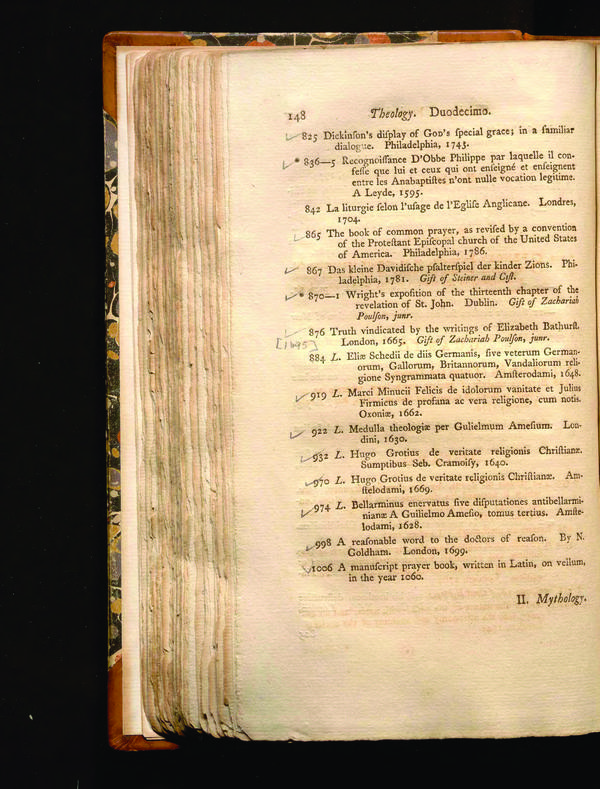 148 Theology. Duodecimo.
825 Dickinſon's diſplay of God's ſpecial grace; in a familiar
dialogue. Philadelphia, 1743.
* 836—5 Recognoiſſance D'Obbe Philippe par laquelle il con-
feſſe que lui et ceux qui ont enſeigné et enſeignent
entre les Anabaptiſtes n'ont nulle vocation legitime.
A Leyde, 1595.
842 La liturgie ſelon l'uſage de l'Egliſe Anglicane. Londres,
1704.
865 The book of common prayer, as reviſed by a convention
of the Proteſtant Epiſcopal church of the United States
of America. Philadelphia, 1786.
867 Das kleine Davidiſche pſalterſpiel der kinder Zions. Phi-
ladelphia, 1781. Gift of Steiner and Ciſt.
* 870—1 Wright's expoſition of the thirteenth chapter of the
revelation of St. John. Dublin. Gift of Zachariah
Poulſon, junr.
876 Truth vindicated by the writings of Elizabeth Bathurſt.
[1695] London, 1665. Gift of Zachariah Poulſon, junr.
884 L. Eliæ Schedii de diis Germanis, ſive veterum German-
orum, Gallorum, Britannorum, Vandaliorum reli-
gione Syngrammata quatuor. Amſterodami, 1648.
919 L. Marci Minucii Felicis de idolorum vanitate et Julius
Firmicus de profana ac vera religione, cum notis.
Oxoniæ, 1662.
922 L. Medulla theologiæ per Gulielmum Ameſium. Lon-
dini, 1630.
932 L. Hugo Grotius de veritate religionis Chriſtianæ.
Sumptibus Seb. Cramoiſy, 1640.
970 L. Hugo Grotius de veritate religionis Chriſtianæ. Am-
ſtelodami, 1669.
974 L. Bellarminus enervatus ſive diſputationes antibellarmi-
nianæ A Guilielmo Ameſio, tomus tertius. Amſte-
lodami, 1628.
998 A reaſonable word to the doctors of reaſon. By N.
Goldham. London, 1699.
1006 A manuſcript prayer book, written in Latin, on vellum,
in the year 1060.
II. Mythology.